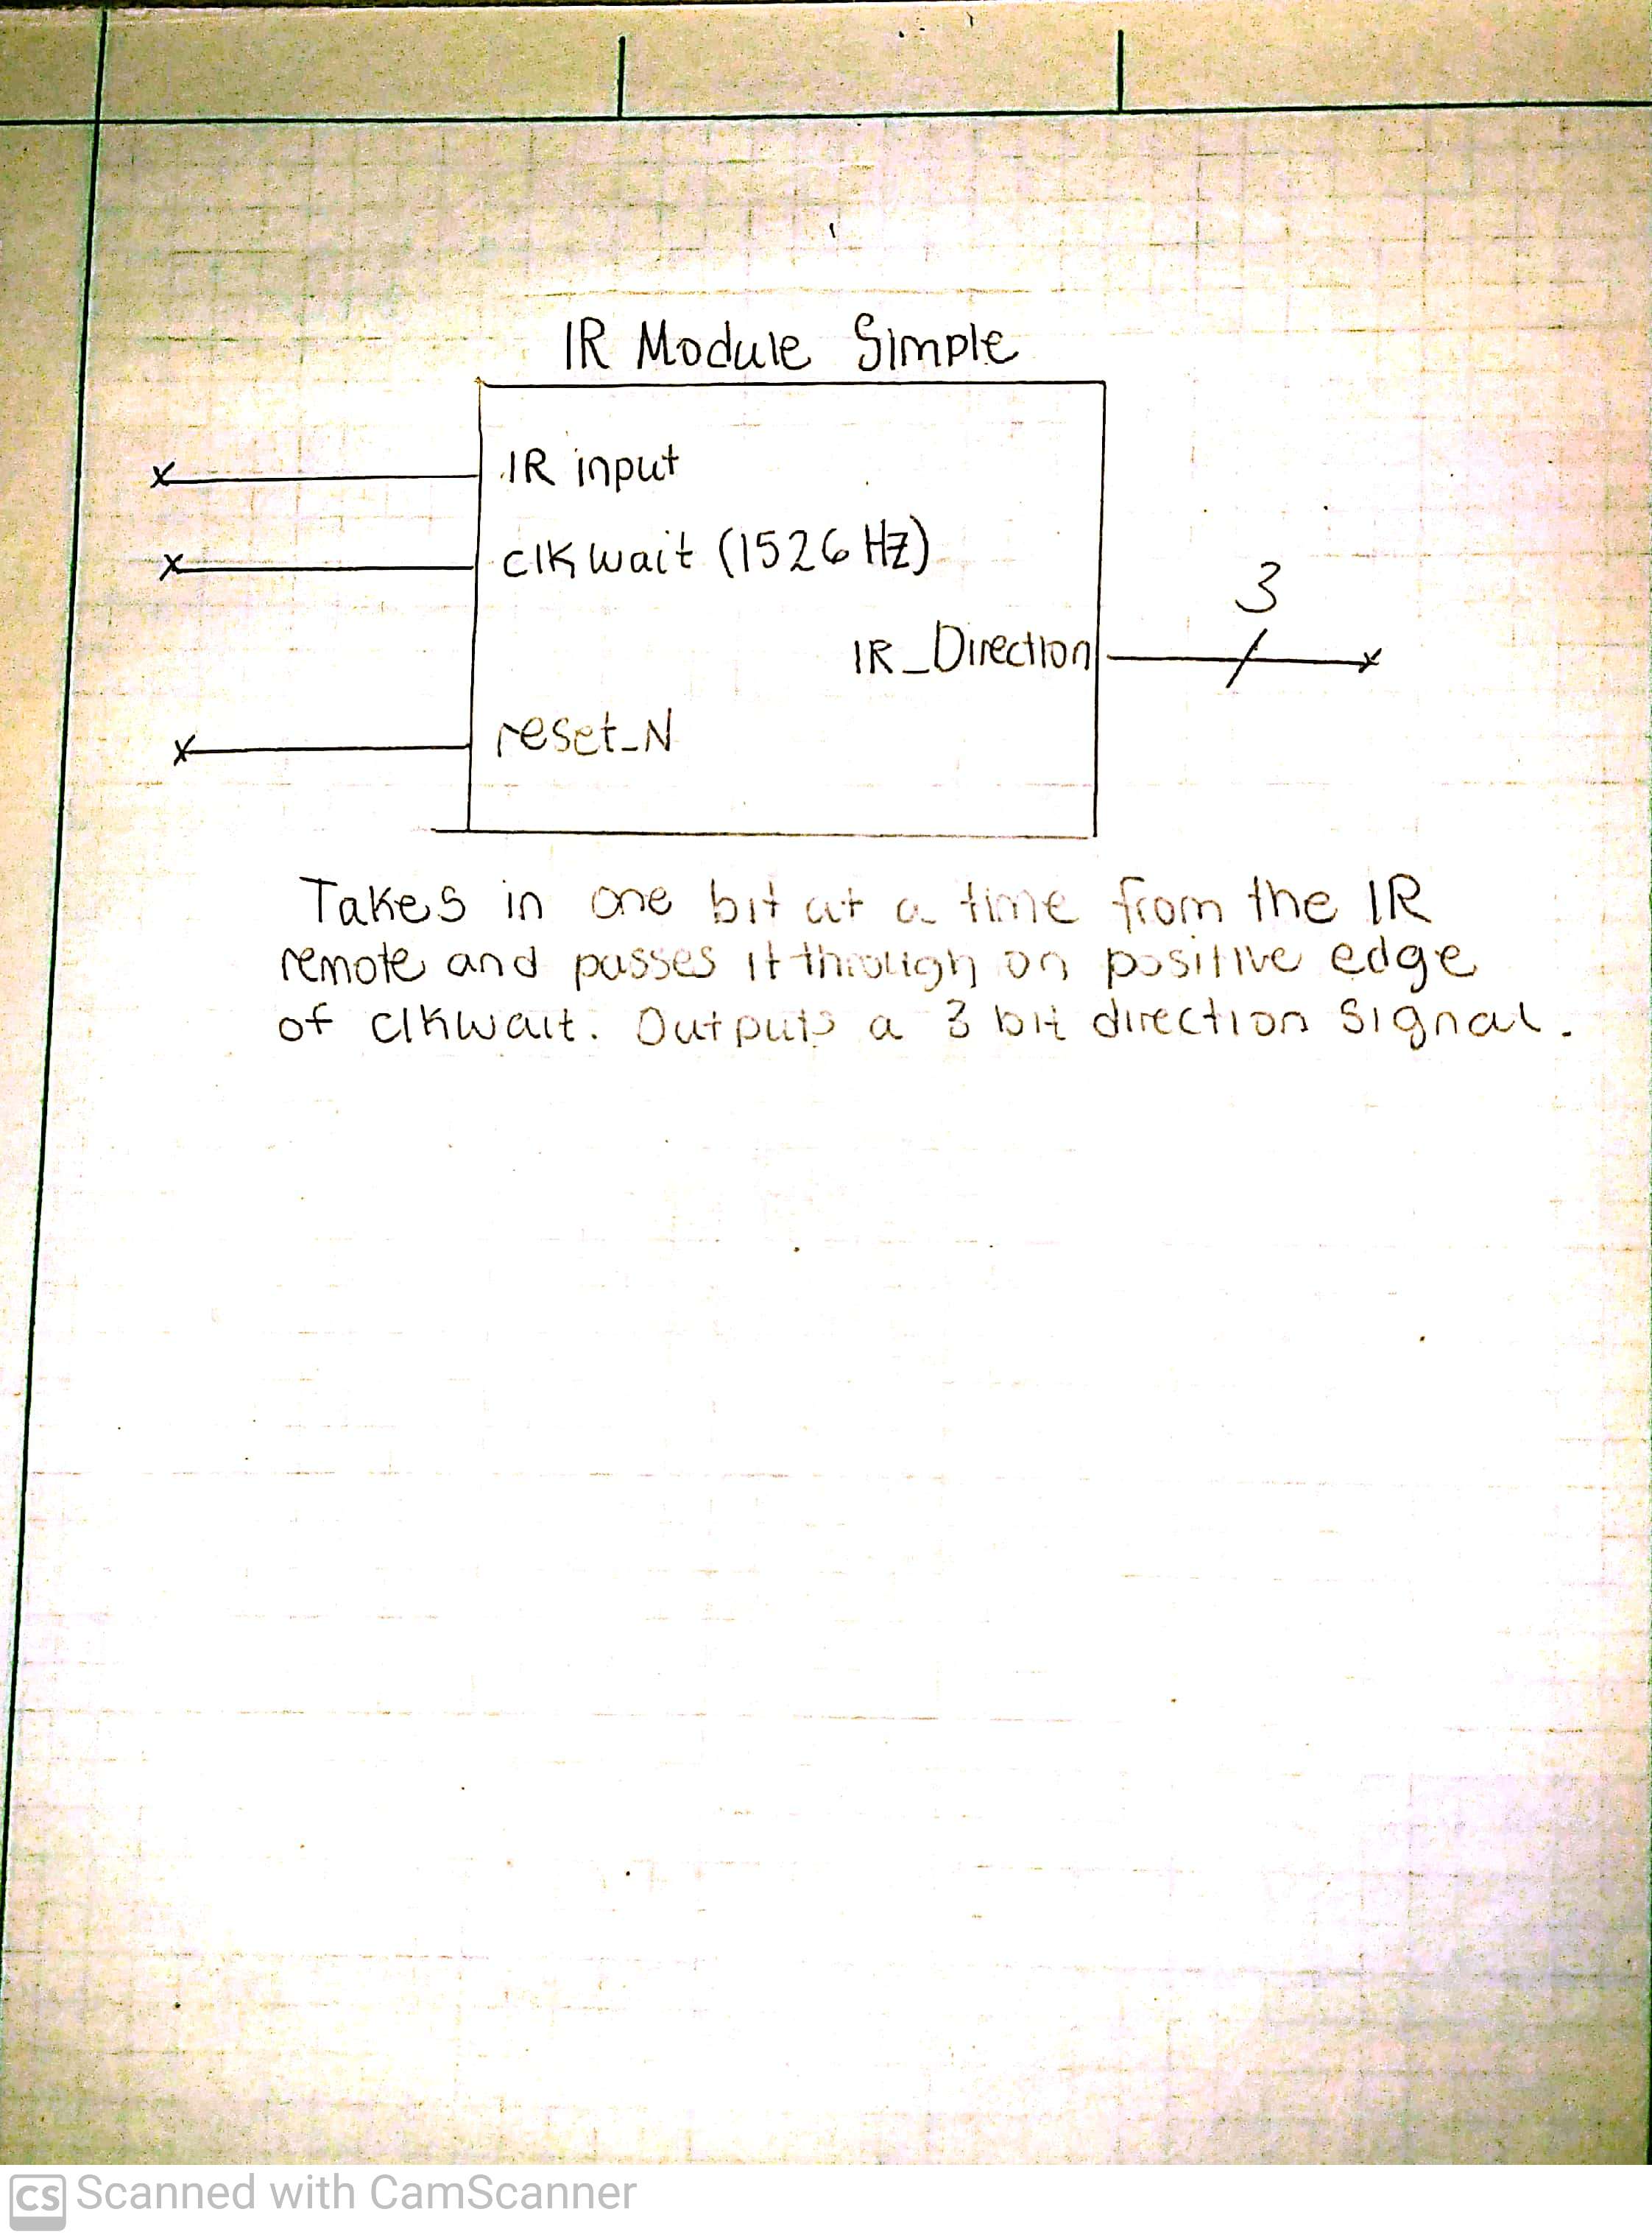 IR Module Simple
IR input
clkwait (1526 Hz)
3
IR_Direction
reset_N
Takes in one bit at a time from the IR
remote and passes it through on positive edge
of clkwait. Outputs a 3 bit direction signal.
CS Scanned with CamScanner